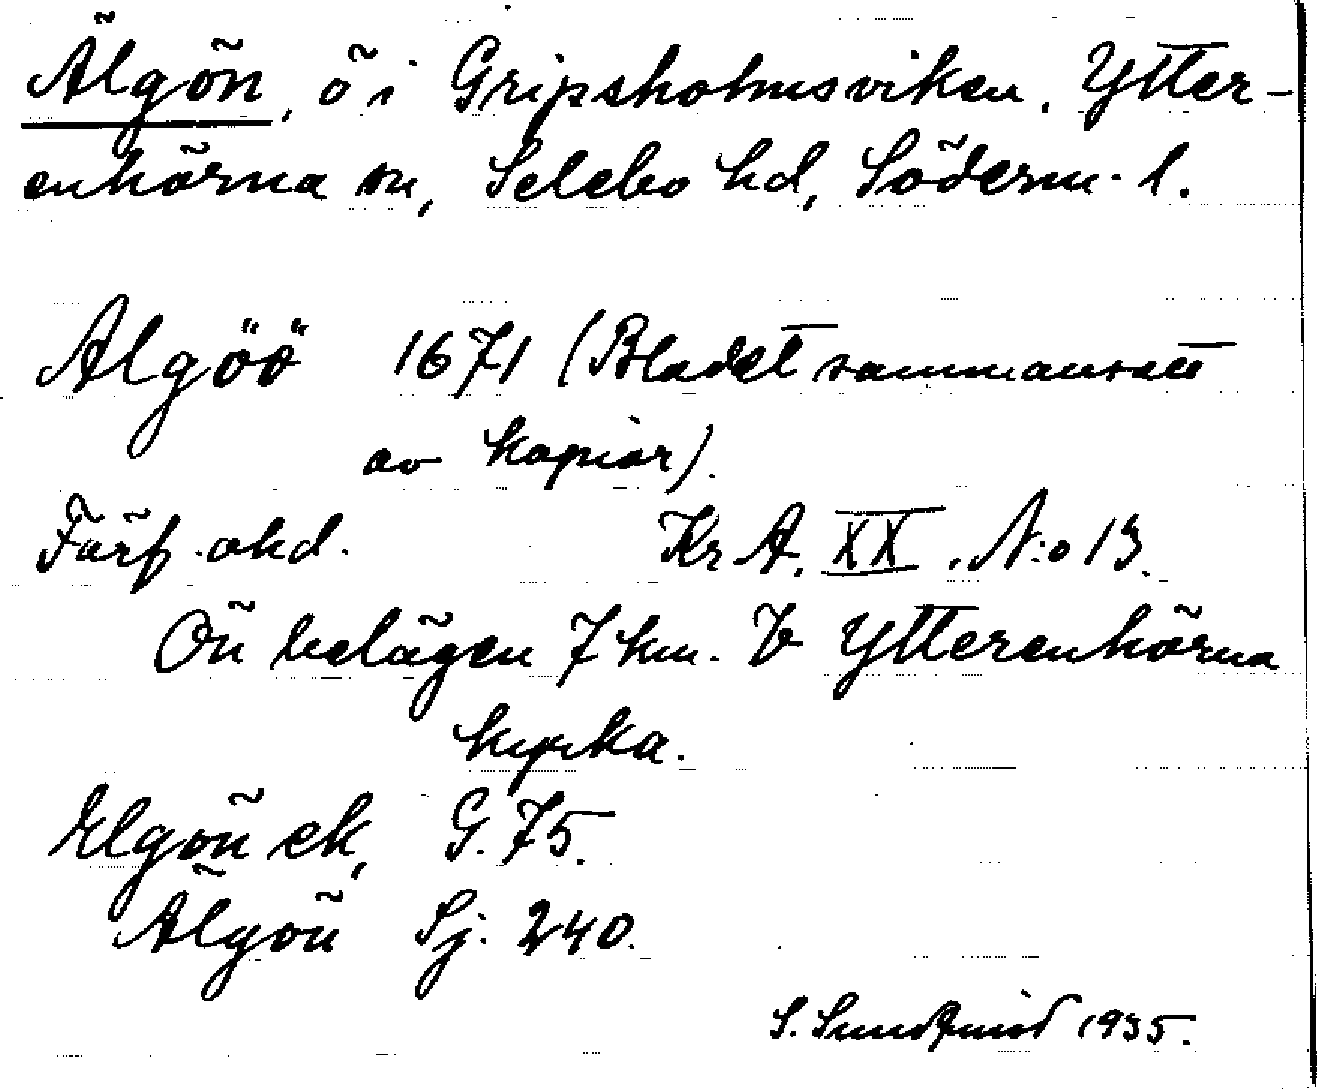 Älgön, ö i Gripsholmsviken, Ytter-
enhörna sn, Selebo hd, Söderm. l.
Algöö 1671 (Bladet sammansatt
av kopior).
Förf. okd. Kr A. XX. N:o 13.
Ön belägen 7 km. V Ytterenhörna
kyrka.
Elgön ek, G. 75.
Älgön Sj. 240.
S. Sundqvist 1935.